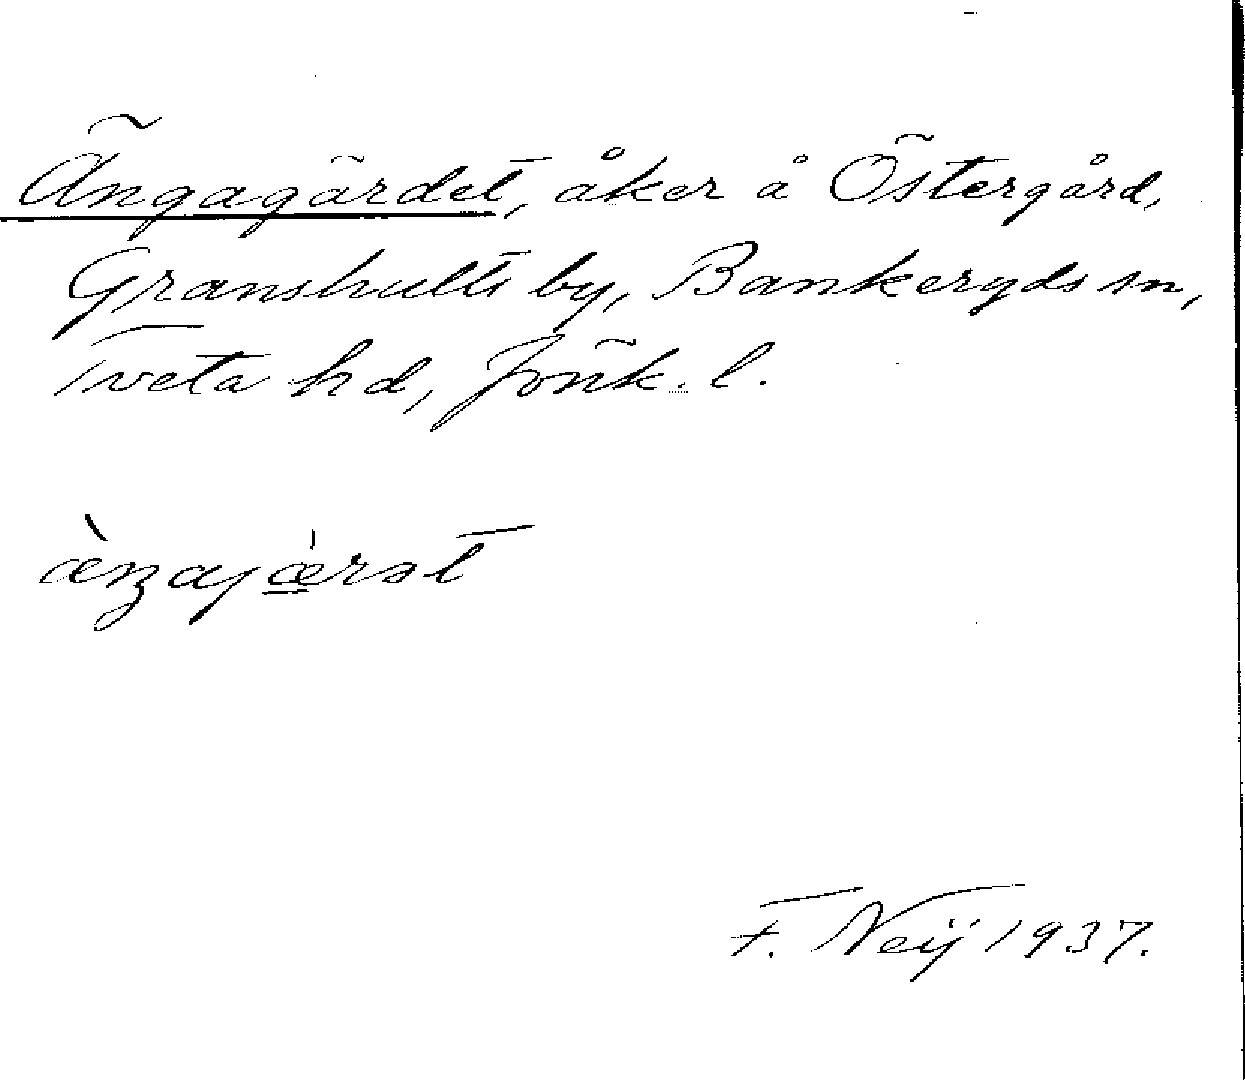 Ängagärdet, åker å Östergård,
Granshults by, Bankeryds sn,
Tveta hd, Jönk. l.
F. Neij 1937.